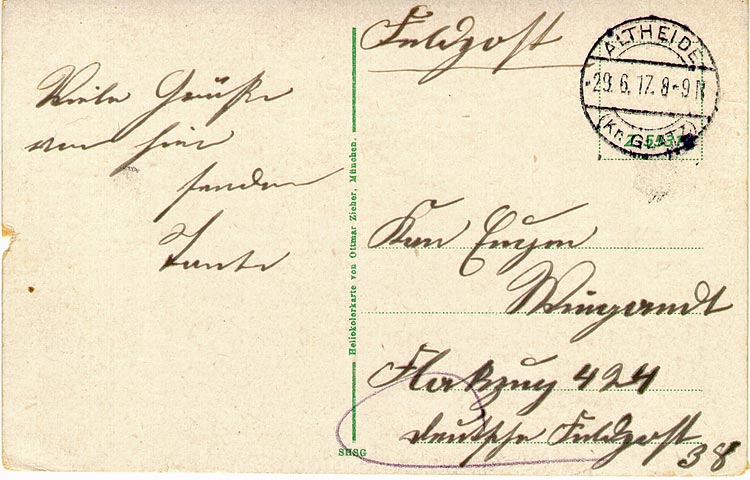 Feldpost
ALTHEIDE
29.6.17. 8-9 N
(Kr. GLATZ)
Viele Grüße
von hier
senden
Tante
Heliokolorkarte von Ottmar Zieher, München.
Eugen
Wingerndt
Flakzug 424
Deutsche Feldpost
38
SHSG